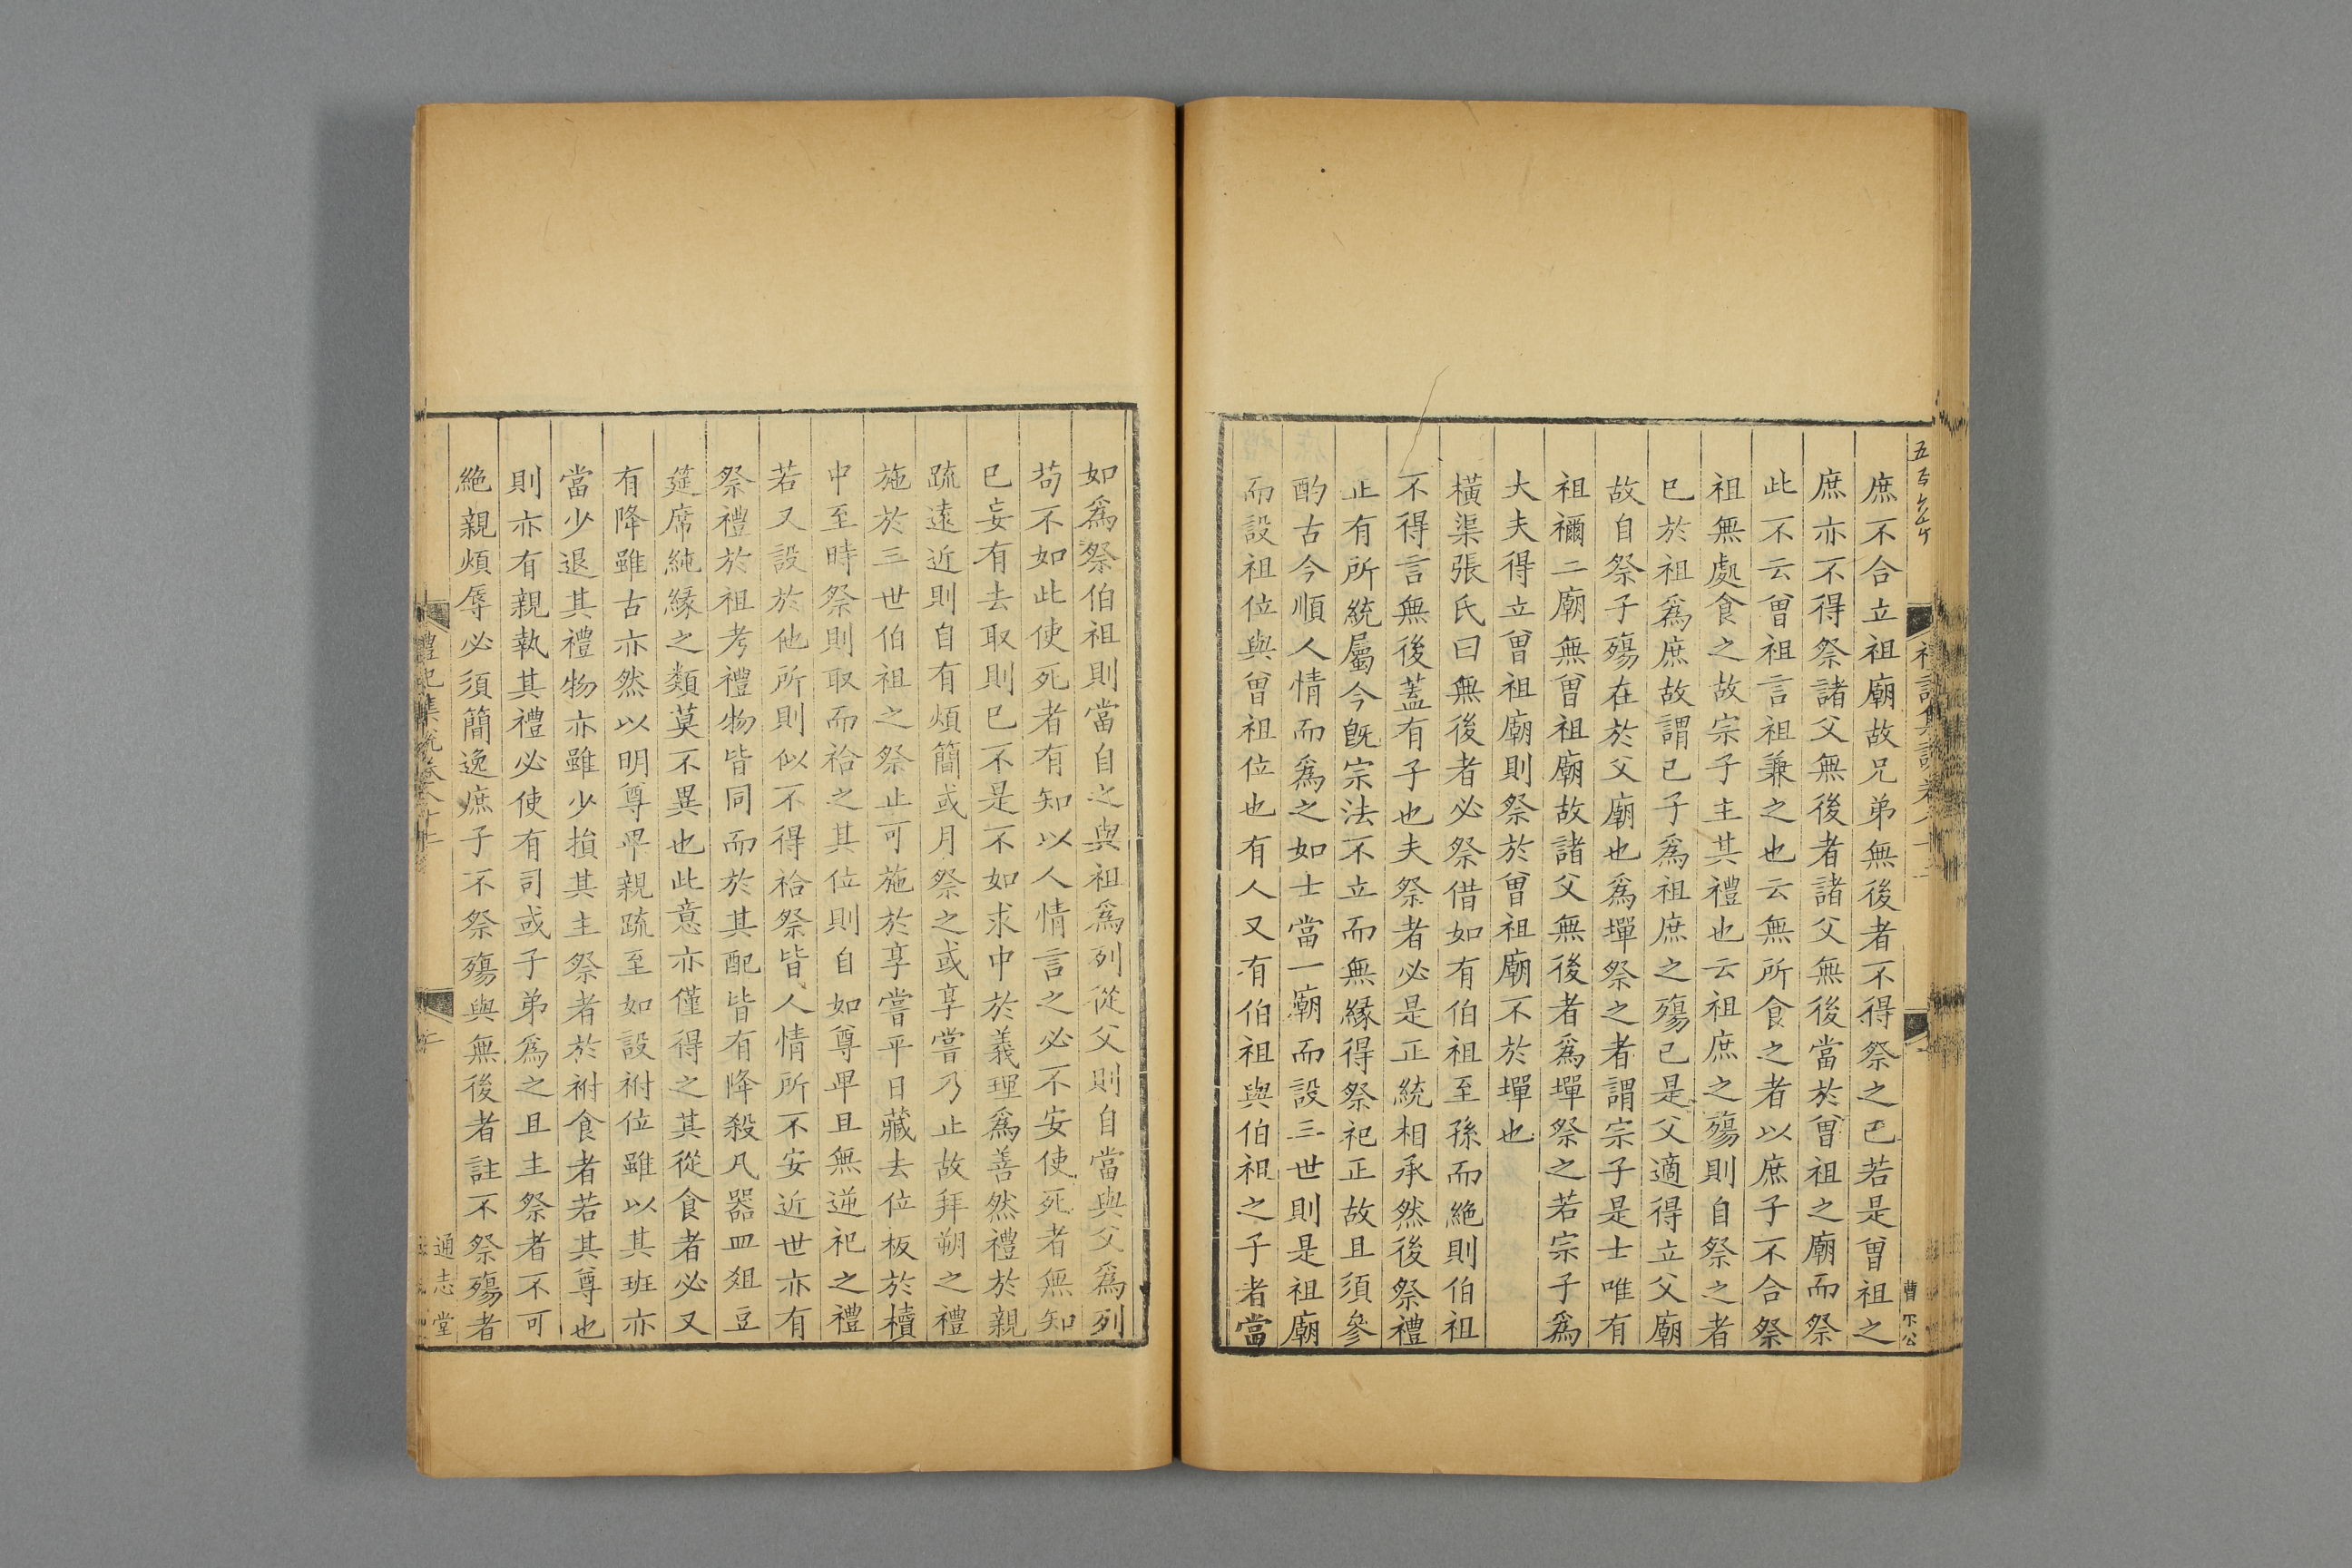 庶不合立祖廟故兄弟無後者不得祭之已若是曾祖之
庶亦不得祭諸父無後者諸父無後當於曾祖之廟而祭
此不云曾祖言祖兼之也云無所食之者以庶子不合祭
祖無處食之故宗子主其禮也云祖庶之殤則自祭之者
已於祖爲庶故謂已子爲祖庶之殤已是父適得立父廟
故自祭子殤在於父廟也爲墠祭之者謂宗子是士唯有
祖禰二廟無曾祖廟故諸父無後者爲墠祭之若宗子爲
大夫得立曾祖廟則祭於曾祖廟不於墠也
橫渠張氏曰無後者必祭借如有伯祖至孫而絶則伯祖
不得言無後蓋有子也夫祭者必是正統相承然後祭禮
正有所統屬今旣宗法不立而無緣得祭祀正故且須參
酌古今順人情而爲之如士當一廟而設三世則是祖廟
而設祖位與曾祖位也有人又有伯祖與伯祖之子者當
如爲祭伯祖則當自之與祖爲列從父則自當與父爲列
苟不如此使死者有知以人情言之必不安使死者無知
已妄有去取則已不是不如求中於義理爲善然禮於親
疏遠近則自有煩簡或月祭之或享嘗乃止故拜朔之禮
施於三世伯祖之祭止可施於享嘗平日藏去位板於櫝
中至時祭則取而祫之其位則自如尊卑且無逆祀之禮
若又設於他所則似不得祫祭皆人情所不安近世亦有
祭禮於祖考禮物皆同而於其配皆有降殺凡器皿俎豆
筵席純緣之類莫不異也此意亦僅得之其從食者必又
有降雖古亦然以明尊卑親疏至如設祔位雖以其班亦
當少退其禮物亦雖少損其主祭者於祔食者若其尊也
則亦有親執其禮必使有司或子弟爲之且主祭者不可
絶親煩辱必須簡逸庶子不祭殤與無後者註不祭殤者
禮記集說卷八十二
通志堂